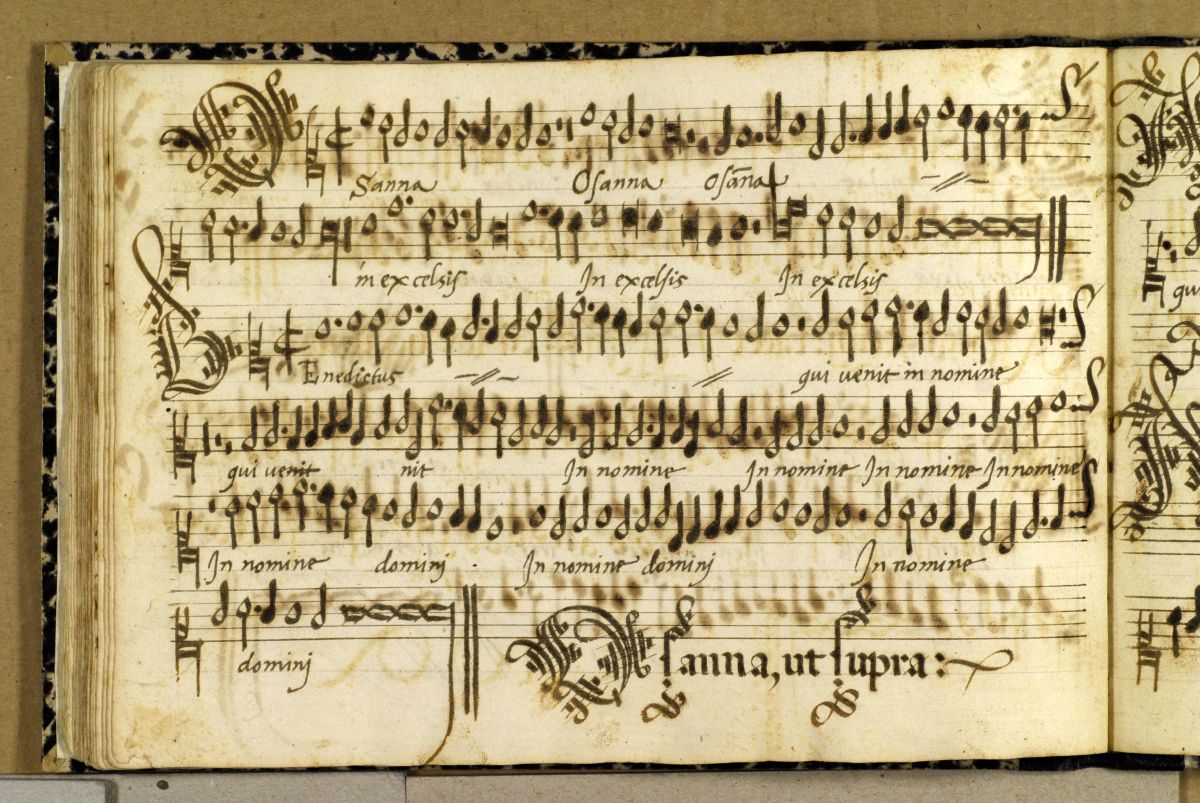 OSanna Osanna osãna
in excelsis In excelsis In excelsis
BEnedictus qui venit in nomine
qui venit nit In nomine In nomine In nomine In nomine
In nomine domini In nomine domini In nomine
domini
Osanna, ut supra: